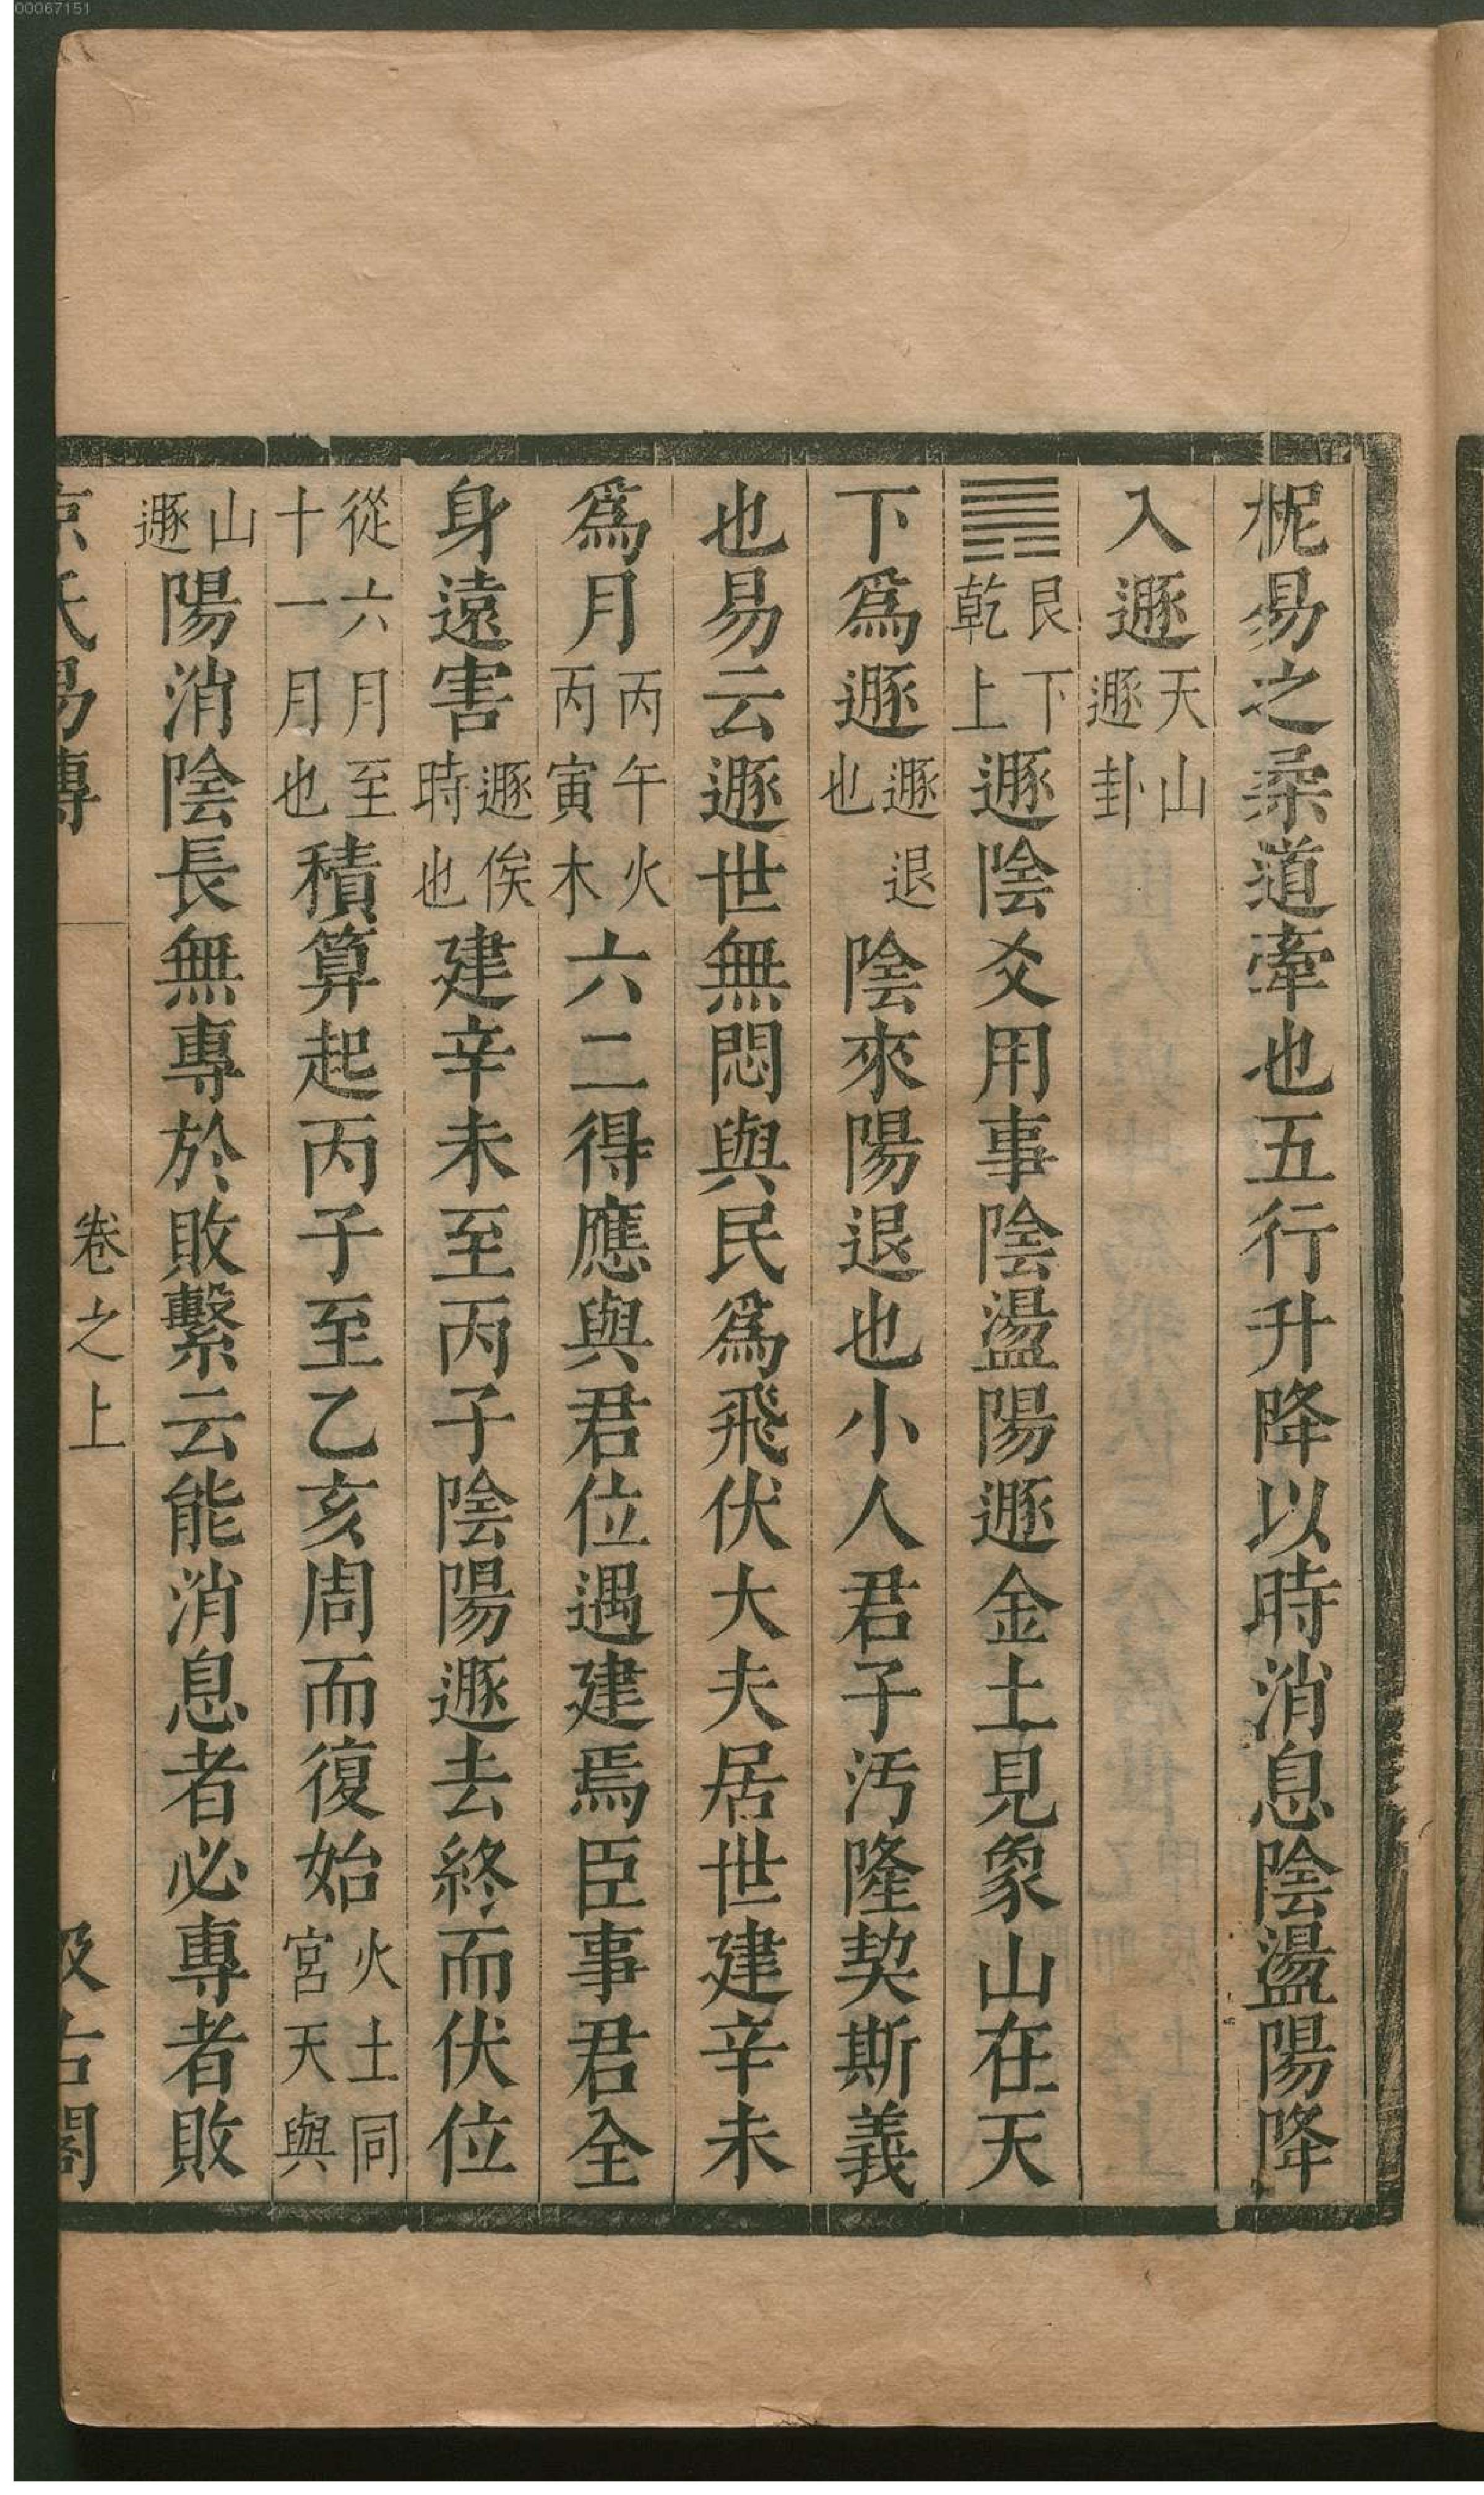 00067151
柅易之柔道牽也五行升降以時消息陰盪陽降
入遯天山遯卦
䷠艮下乾上遯陰爻用事陰盪陽遯金土見象山在天
下爲遯遯退也陰來陽退也小人君子汚隆契斯義
也易云遯世無悶與民爲飛伏大夫居世建辛未
爲月丙午火丙寅木六二得應與君位遇建焉臣事君全
身遠害遯俟時也建辛未至丙子陰陽遯去終而伏位
從六月至十一月也積算起丙子至乙亥周而復始火土同宮天與
山遯陽消陰長無專於敗繫云能消息者必專者敗
京氏易傳 卷之上 汲古閣